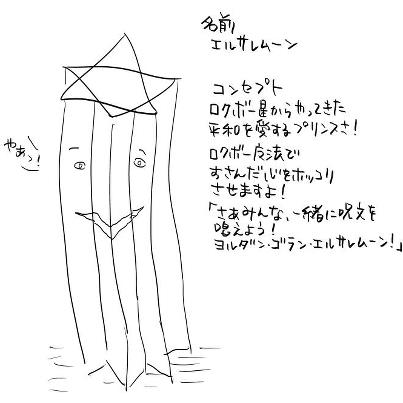 名前
エルサレムーン
コンセプト
ロクボー星からやってきた
平和を愛するプリンスさ!
ロクボー魔法で
すさんだ心をホッコリ
させますよ!
「さあみんな、一緒に呪文を
唱えよう!
ヨルダン・ゴラン・エルサレムーン!」
やあっ!